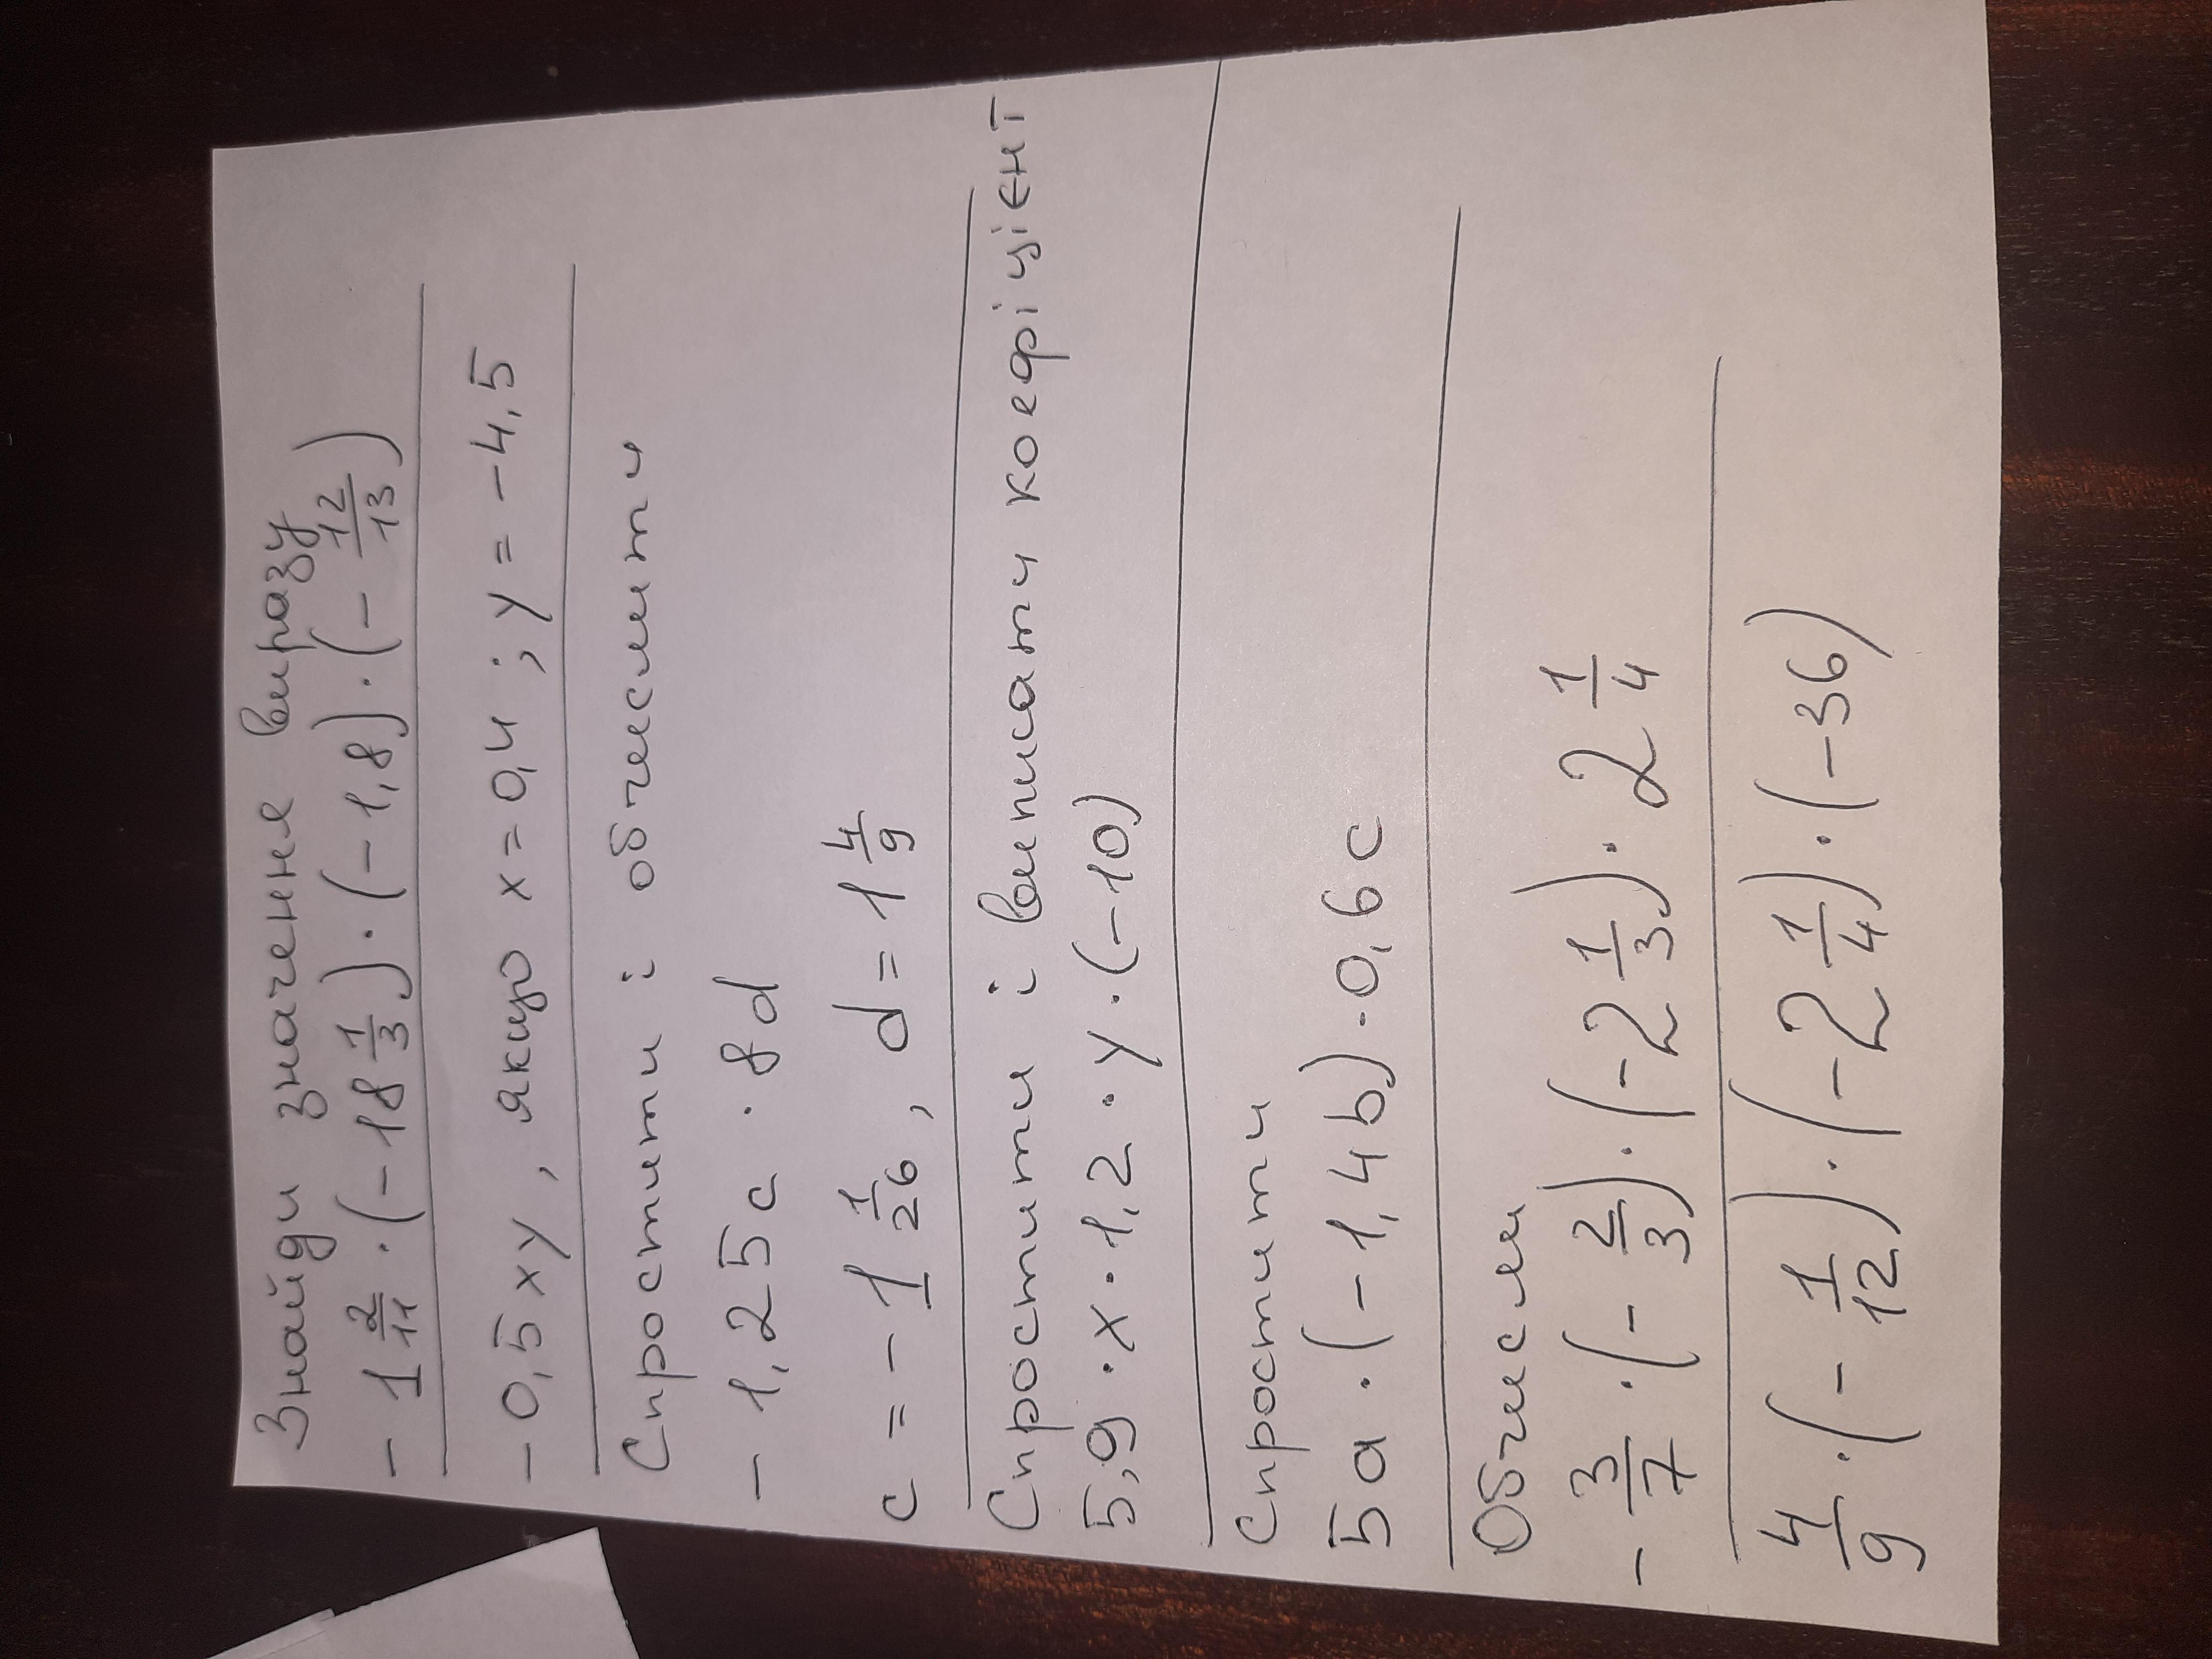 Знайди значення виразу
- 1 2/11 · (- 18 1/3) · (- 1,8) · (- 12/13)
- 0,5 xy, якщо x = 0,4 ; y = - 4,5
Спростити і обчислити
- 1,25c · 8d
c = - 1 1/26 , d = 1 4/9
Спростити і виписати коефіцієнт
5,9 · x · 1,2 · y · (-10)
Спростити
5a · (- 1,4b) · 0,6c
Обчисли
- 3/7 · (- 2/3) · (- 2 1/3) · 2 1/4
4/9 · (- 1/12) · (- 2 1/4) · (- 36)